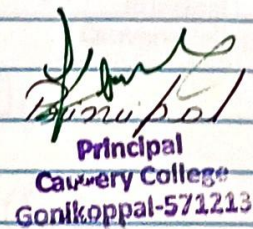 Principal
Principal
Cauvery College
Gonikoppal-571213